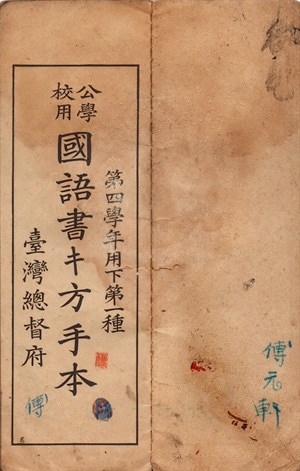 公學校用
第四學年用下第一種
國語書キ方手本
臺灣總督府
傅
傅元軒